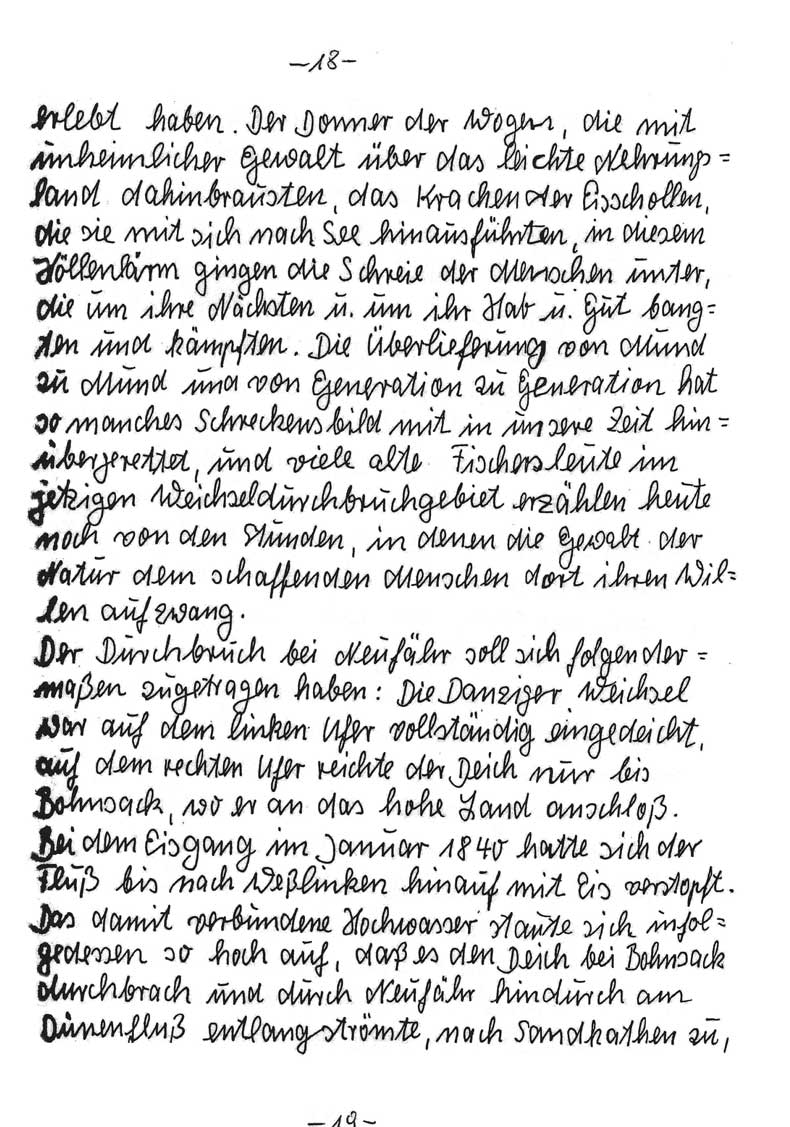 -18-
erlebt haben. Der Donner der Wogen, die mit
unheimlicher Gewalt über das leichte Nehrungs=
land dahinbrausten, das Krachen der Eisschollen,
die sie mit sich nach See hinausführten, in diesem
Höllenlärm gingen die Schreie der Menschen unter,
die um ihre Nächsten u. um ihr Hab u. Gut bang=
ten und kämpften. Die Überlieferung von Mund
zu Mund und von Generation zu Generation hat
so manches Schreckensbild mit in unsere Zeit hin=
übergerettet, und viele alte Fischersleute im
jetzigen Weichseldurchbruchgebiet erzählen heute
noch von den Stunden, in denen die Gewalt der
Natur dem schaffenden Menschen dort ihren Wil=
len aufzwang.
Der Durchbruch bei Neufähr soll sich folgender=
maßen zugetragen haben: Die Danziger Weichsel
war auf dem linken Ufer vollständig eingedeicht,
auf dem rechten Ufer reichte der Deich nur bis
Bohnsack, wo er an das hohe Land anschloß.
Bei dem Eisgang im Januar 1840 hatte sich der
Fluß bis nach Weßlinken hinauf mit Eis verstopft.
Das damit verbundene Hochwasser staute sich infol=
gedessen so hoch auf, daß es den Deich bei Bohnsack
durchbrach und durch Neufähr hindurch am
Dünenfluß entlang strömte, nach Sandkathen zu,
-19-